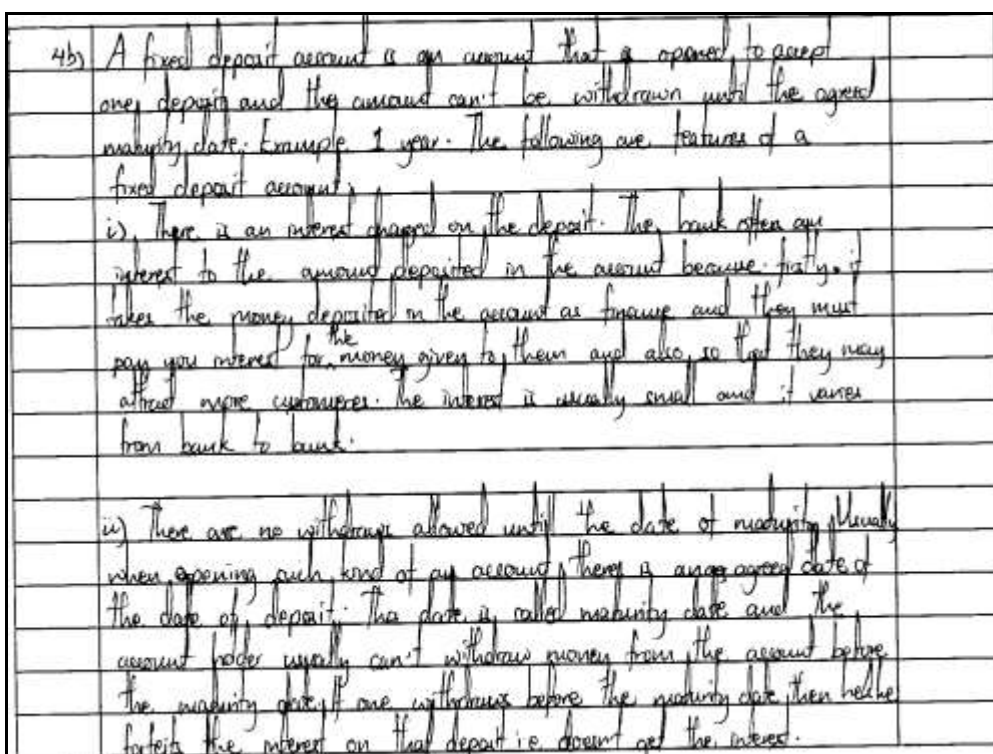 4b) A fixed deposit account is an account that is opened to accept
one deposit and the amount can't be withdrawn until the agreed
maturity date. Example 1 year. The following are features of a
fixed deposit account;
i) There is an interest charged on the deposit. The bank often
interest to the amount deposited in the account because firstly, it
takes the money deposited in the account as finance and they must
pay you interest for the money given to them and also, so that they may
attract more customeres. The interest is usually small and it varies
from bank to bank.
ii) There are no withdraws allowed until the date of maturity. Usually
when opening such kind of an account, there is agreed date of
the date of deposit. This date is called maturity date and the
account hoder usually can't withdraw money from the account before
the maturity date. If one withdraws before the maturity date then he/she
forfeits the interest on that deposit i.e doesn't get the interest.